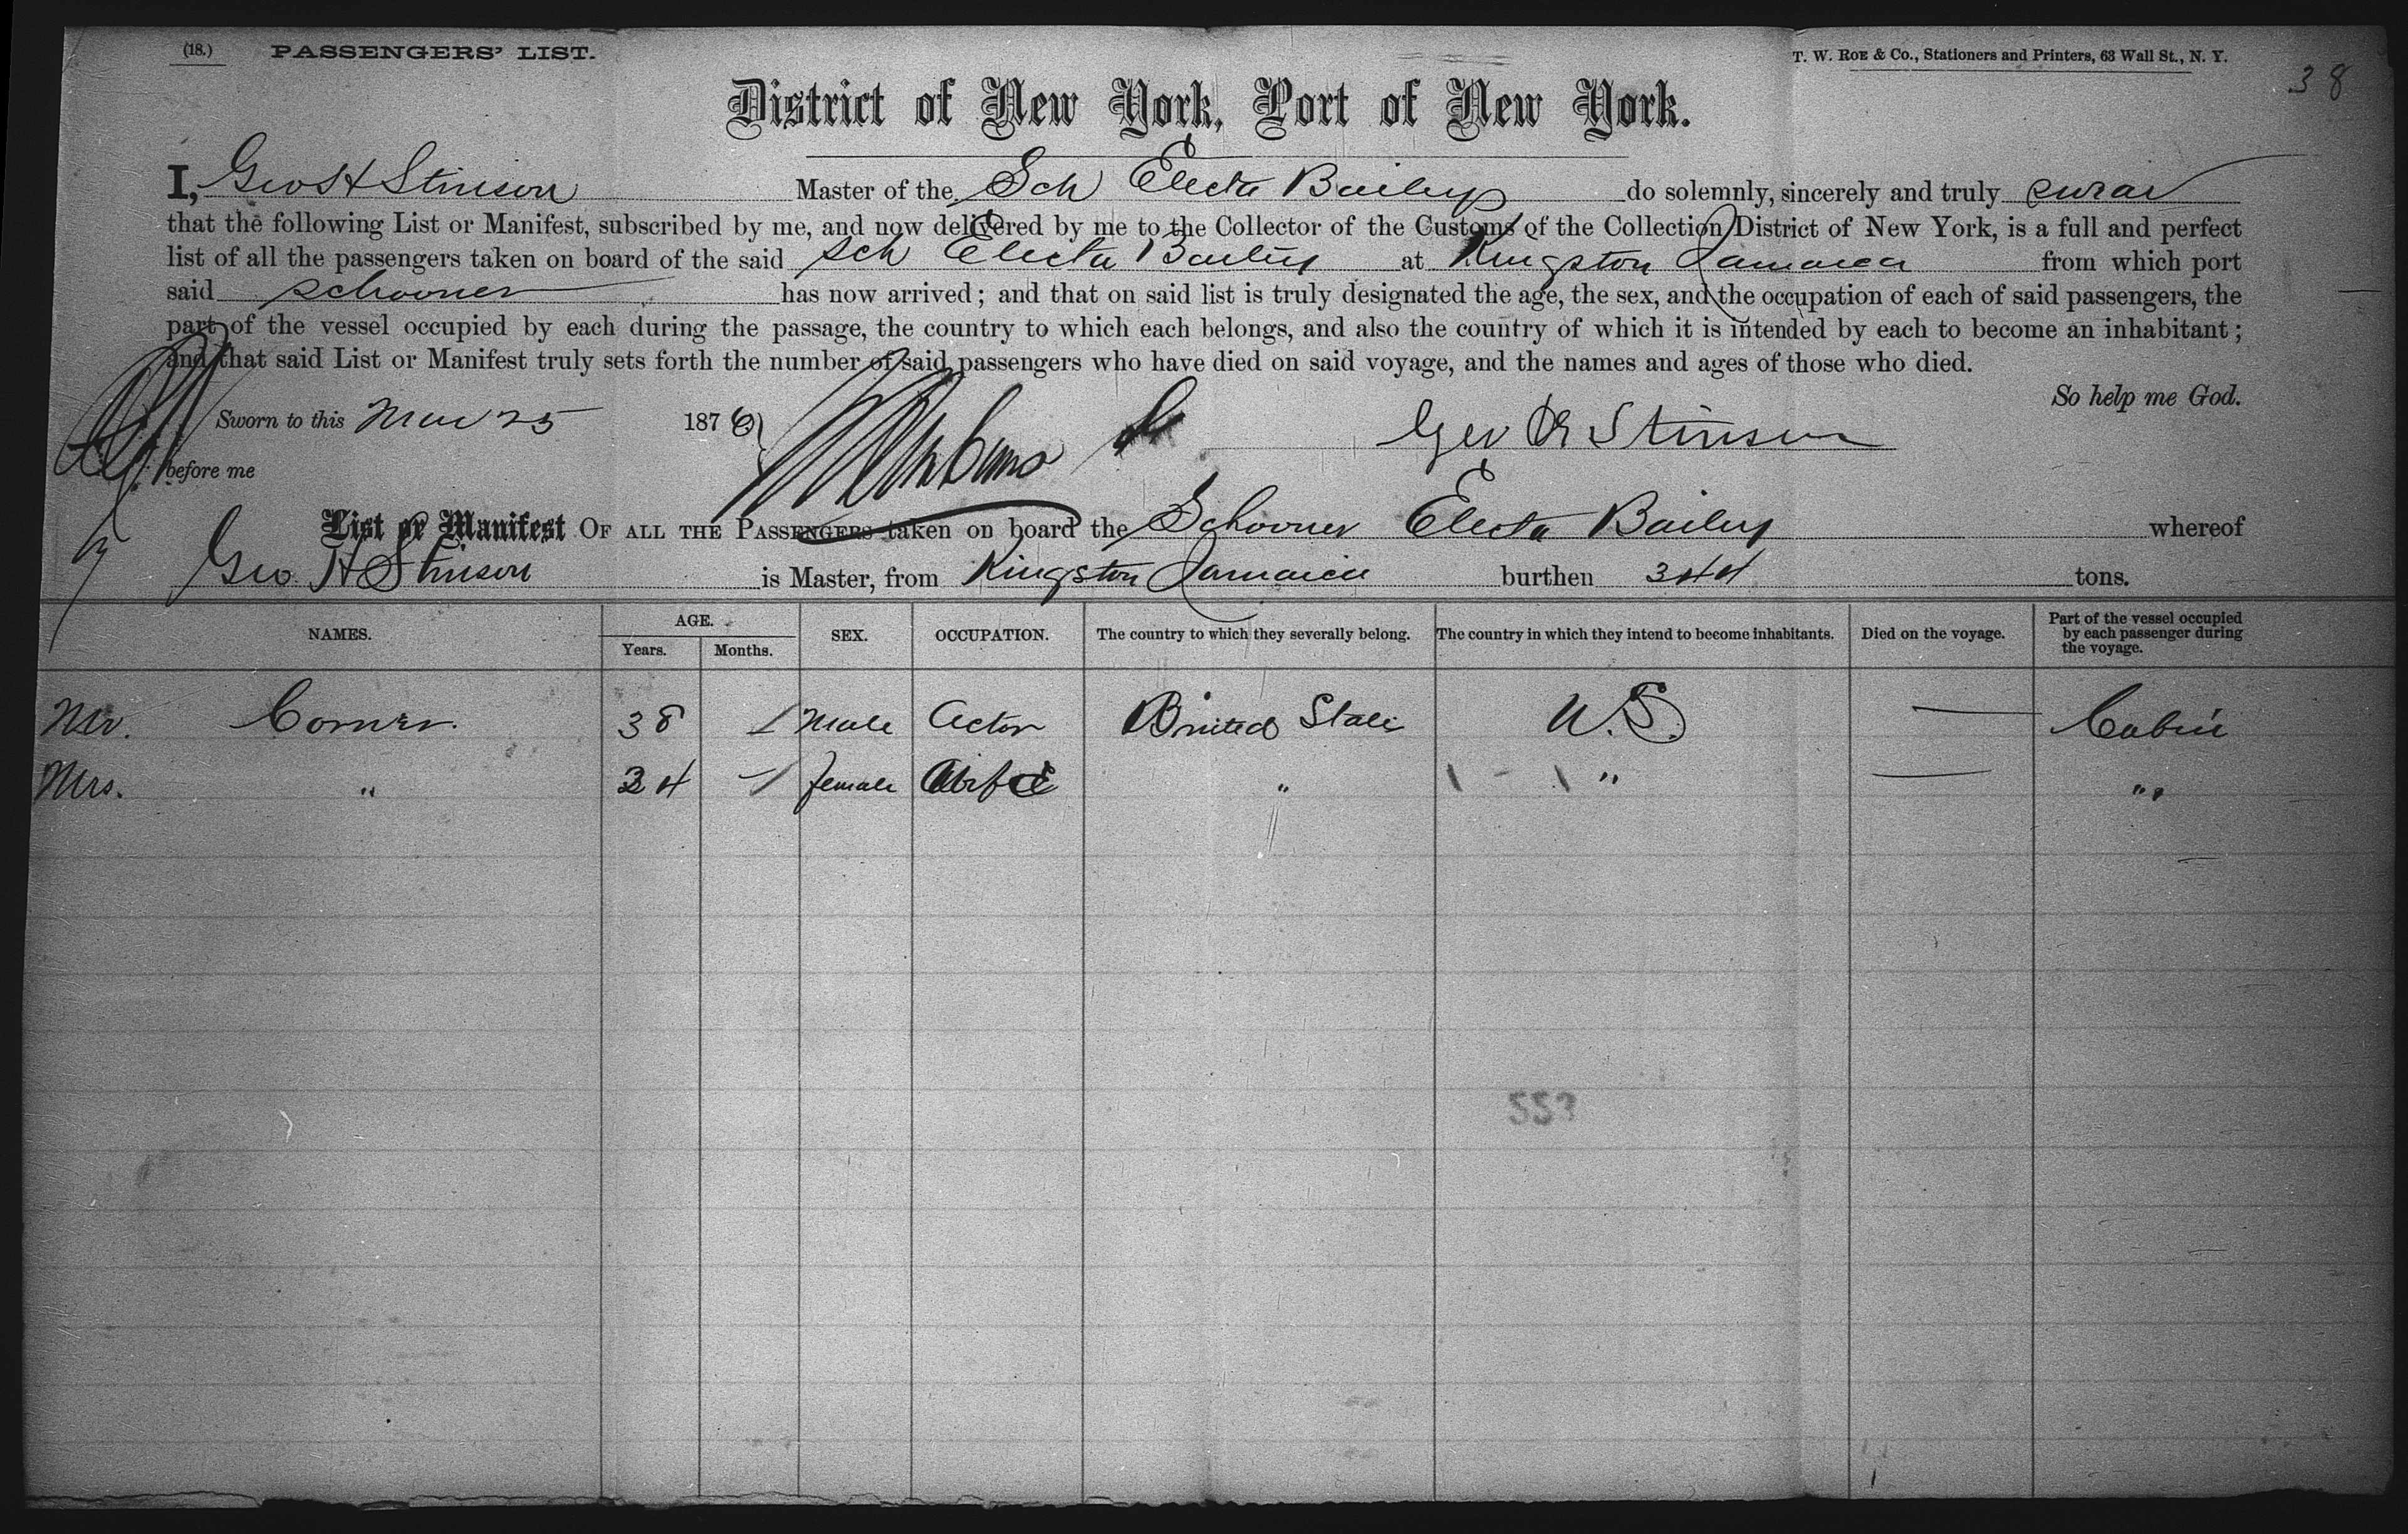 (18.) PASSENGERS' LIST. T. W. ROE & Co., Stationers and Printers, 63 Wall St., N. Y.
38
District of New York, Port of New York.
I, Geo H Stinson Master of the Sch Electa Bailey do solemnly, sincerely and truly swear
that the following List or Manifest, subscribed by me, and now delivered by me to the Collector of the Customs of the Collection District of New York, is a full and perfect
list of all the passengers taken on board of the said Sch Electa Bailey at Kingston Jamaica from which port
said schooner has now arrived; and that on said list is truly designated the age, the sex, and the occupation of each of said passengers, the
part of the vessel occupied by each during the passage, the country to which each belongs, and also the country of which it is intended by each to become an inhabitant;
and that said List or Manifest truly sets forth the number of said passengers who have died on said voyage, and the names and ages of those who died.
So help me God.
Sworn to this Mar 25 1876 Geo H Stinson
before me
List or Manifest OF ALL THE PASSENGERS taken on board the Schooner Electa Bailey whereof
Geo H Stinson is Master, from Kingston Jamaica burthen 344 tons.
NAMES. AGE. Years. Months. SEX. OCCUPATION. The country to which they severally belong. The country in which they intend to become inhabitants. Died on the voyage. Part of the vessel occupied by each passenger during the voyage.
Mr. Comer. 38 Male Actor United States U.S. — Cabin
Mrs. " 34 female Wife " " — "